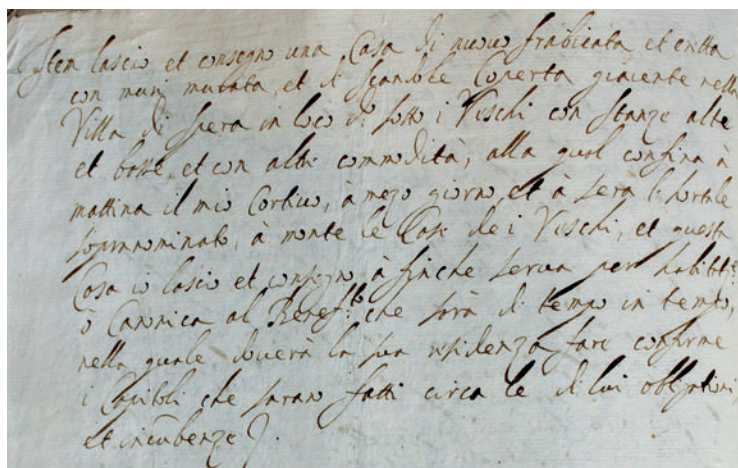 Item lascio et consegno una Casa di nuovo frabicata et eretta
con muri murata, et di scandole Coperta giacente nella
Villa di Spera in loco di sotto i Veschi con stanze alte
et basse, et con altre commodità, alla qual confina à
mattina il mio Cortivo, à mezo giorno et à sera l'hortale
sopranominato, à monte le Case dei Veschi, et questa
Casa io lascio et consegno, à finche serva per habit.e
ò Canonica al Benef.to che sarà di tempo in tempo,
nella quale doverà la sua residenza fare conforme
i Capitoli che saran fatti circa le di lui obligationi,
et incūbenze.